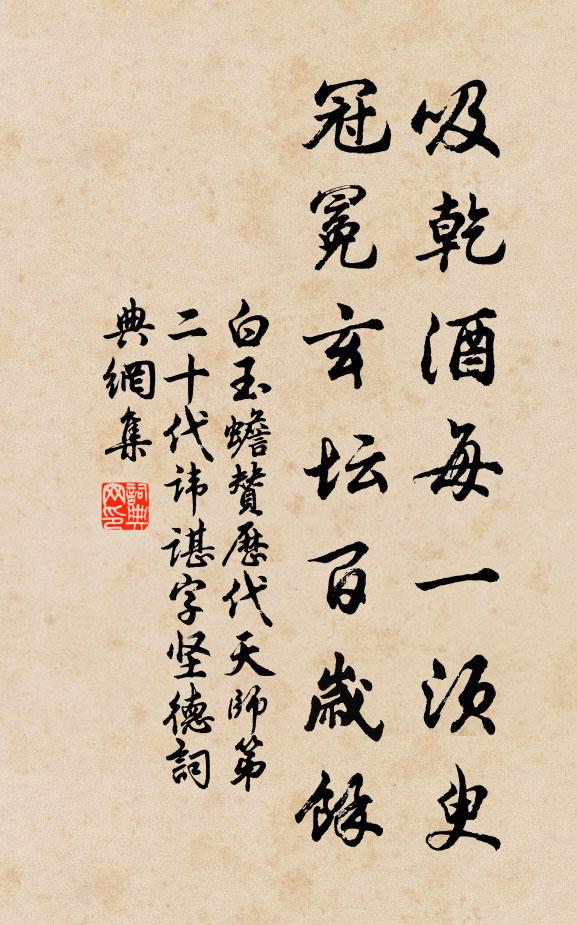 吸乾酒每一须叟
冠冕玄坛百歲餘
白玉蟾贊歷代天师第
二十代諱諶字坚德詞
典網集
詞典
网印